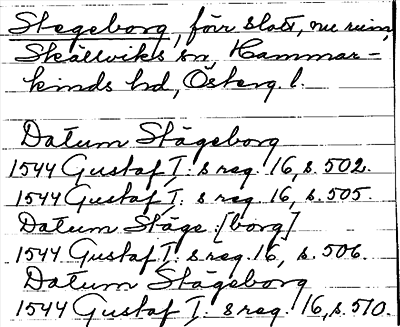 Stegeborg, förr slott, nu ruin,
Skällviks sn, Hammar-
kinds hd, Österg. l.
Datum Stägeborg
1544 Gustaf I:s reg. 16, s. 502.
1544 Gustaf I:s reg. 16, s. 505.
Datum Stäge [borg]
1544 Gustaf I:s reg. 16, s. 506.
Datum Stägeborg
1544 Gustaf I:s reg. 16, s. 510.